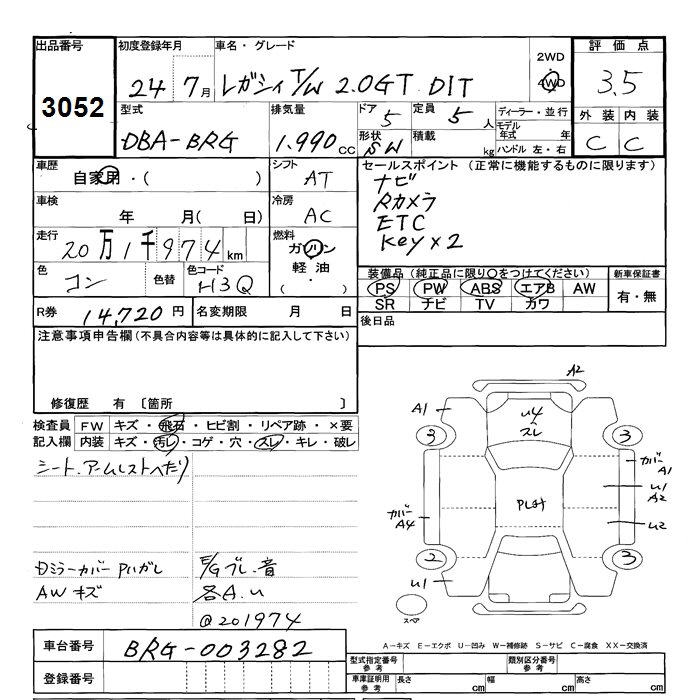 出品番号 初度登録年月 車名・グレード 評価点
3052 24 7月 レガシィ T/W 2.0GT DIT 2WD 4WD 3.5
型式 排気量 ドア 定員 ディーラー・並行 外装 内装
DBA-BRG 1.990cc 5 5人 モデル年式 年 C C
形状 SW 積載 kg ハンドル 左・右
車歴 シフト セールスポイント (正常に機能するものに限ります)
自家用・( ) AT ナビ
車検 冷房 Rカメラ
年 月( 日) AC ETC
走行 燃料 Key×2
20万1千974km ガソリン
色 色替 色コード 軽油 装備品(純正品に限り○をつけてください) 新車保証書
コン H3Q (・) PS PW ABS エアB AW 有・無
SR ナビ TV カワ
R券 14,720円 名変期限 月 日 後日品
注意事項申告欄(不具合内容等は具体的に記入して下さい)
修復歴 有 〔箇所 〕
検査員 FW キズ・飛石・ヒビ割・リペア跡・×要
記入欄 内装 キズ・汚レ・コゲ・穴・スレ・キレ・破レ
シート.アームレストヘたり
Dミラーカバー P11ガレ E/Gブレ.音
AWキズ 各A.U
@201974
A2
A1 U4 スレ
3 3
カバー A1
U1 A2
カバー A4 U2
2 3
U1
スペア
A-キズ E-エクボ U-凹み W-補修跡 S-サビ C-腐食 XX-交換済
車台番号 BRG-003282
型式指定番号 参考 類別区分番号 参考
登録番号 車庫証明用 参考 長さ cm 幅 cm 高さ cm